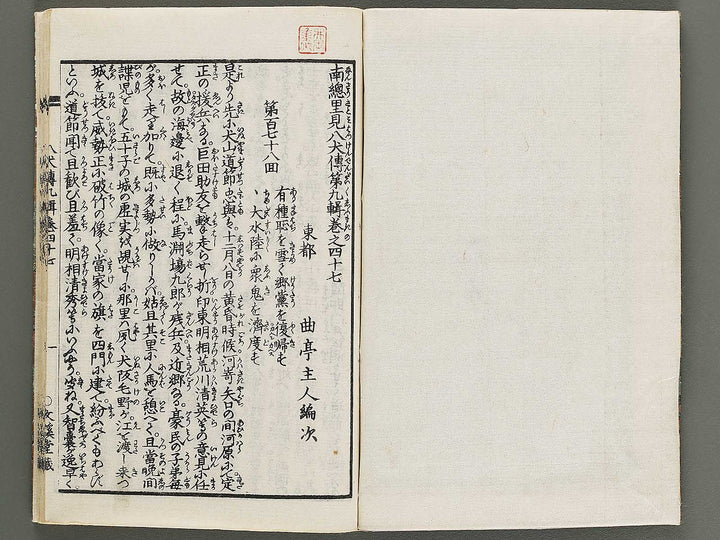 南總里見八犬傳第九輯卷之四十七
東都 曲亭主人編次
第百七十八回
有種恥を雪て郷黨を復歸す
、大水陸に衆鬼を濟度す
是より先に犬山道節忠與は十二月八日の黄昏時候河嵜矢口の間河原にて定
正の援兵なる巨田助友を撃走らせし折印東明相荒川清英等の意見に任
せて故の海邊に退く程に馬淵場九郎が殘兵及近郷なる豪民の子弟毎
多く走加りて既に多勢に做りしかバ姑且其里に人馬を憩へて且當晩間
諜児をもて五十子の城の虚実を覘せしに那里ハ夙く犬阪毛野が江を渡し来つ
城を抜て威勢正に破竹の像く當家の旗を四門に建て紛ふべくもあらず
といふ道節聞て且歓び且羞て明相清英等にいふやう
又智嚢の逸早く
八犬傳九輯卷四十七
一
〇文溪堂藏